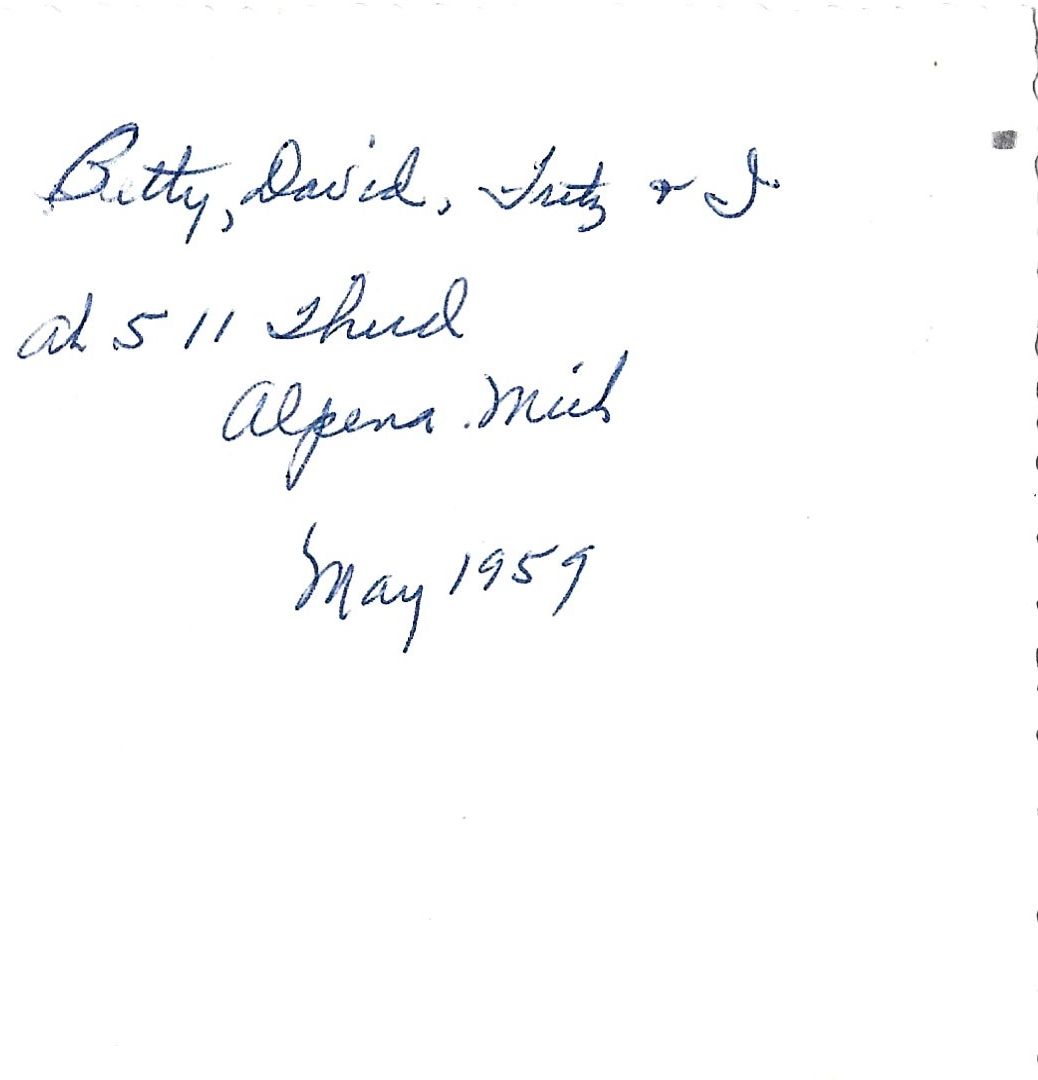 Betty, David, Fritz & I.
at 511 Third
Alpena. Mich
May 1959